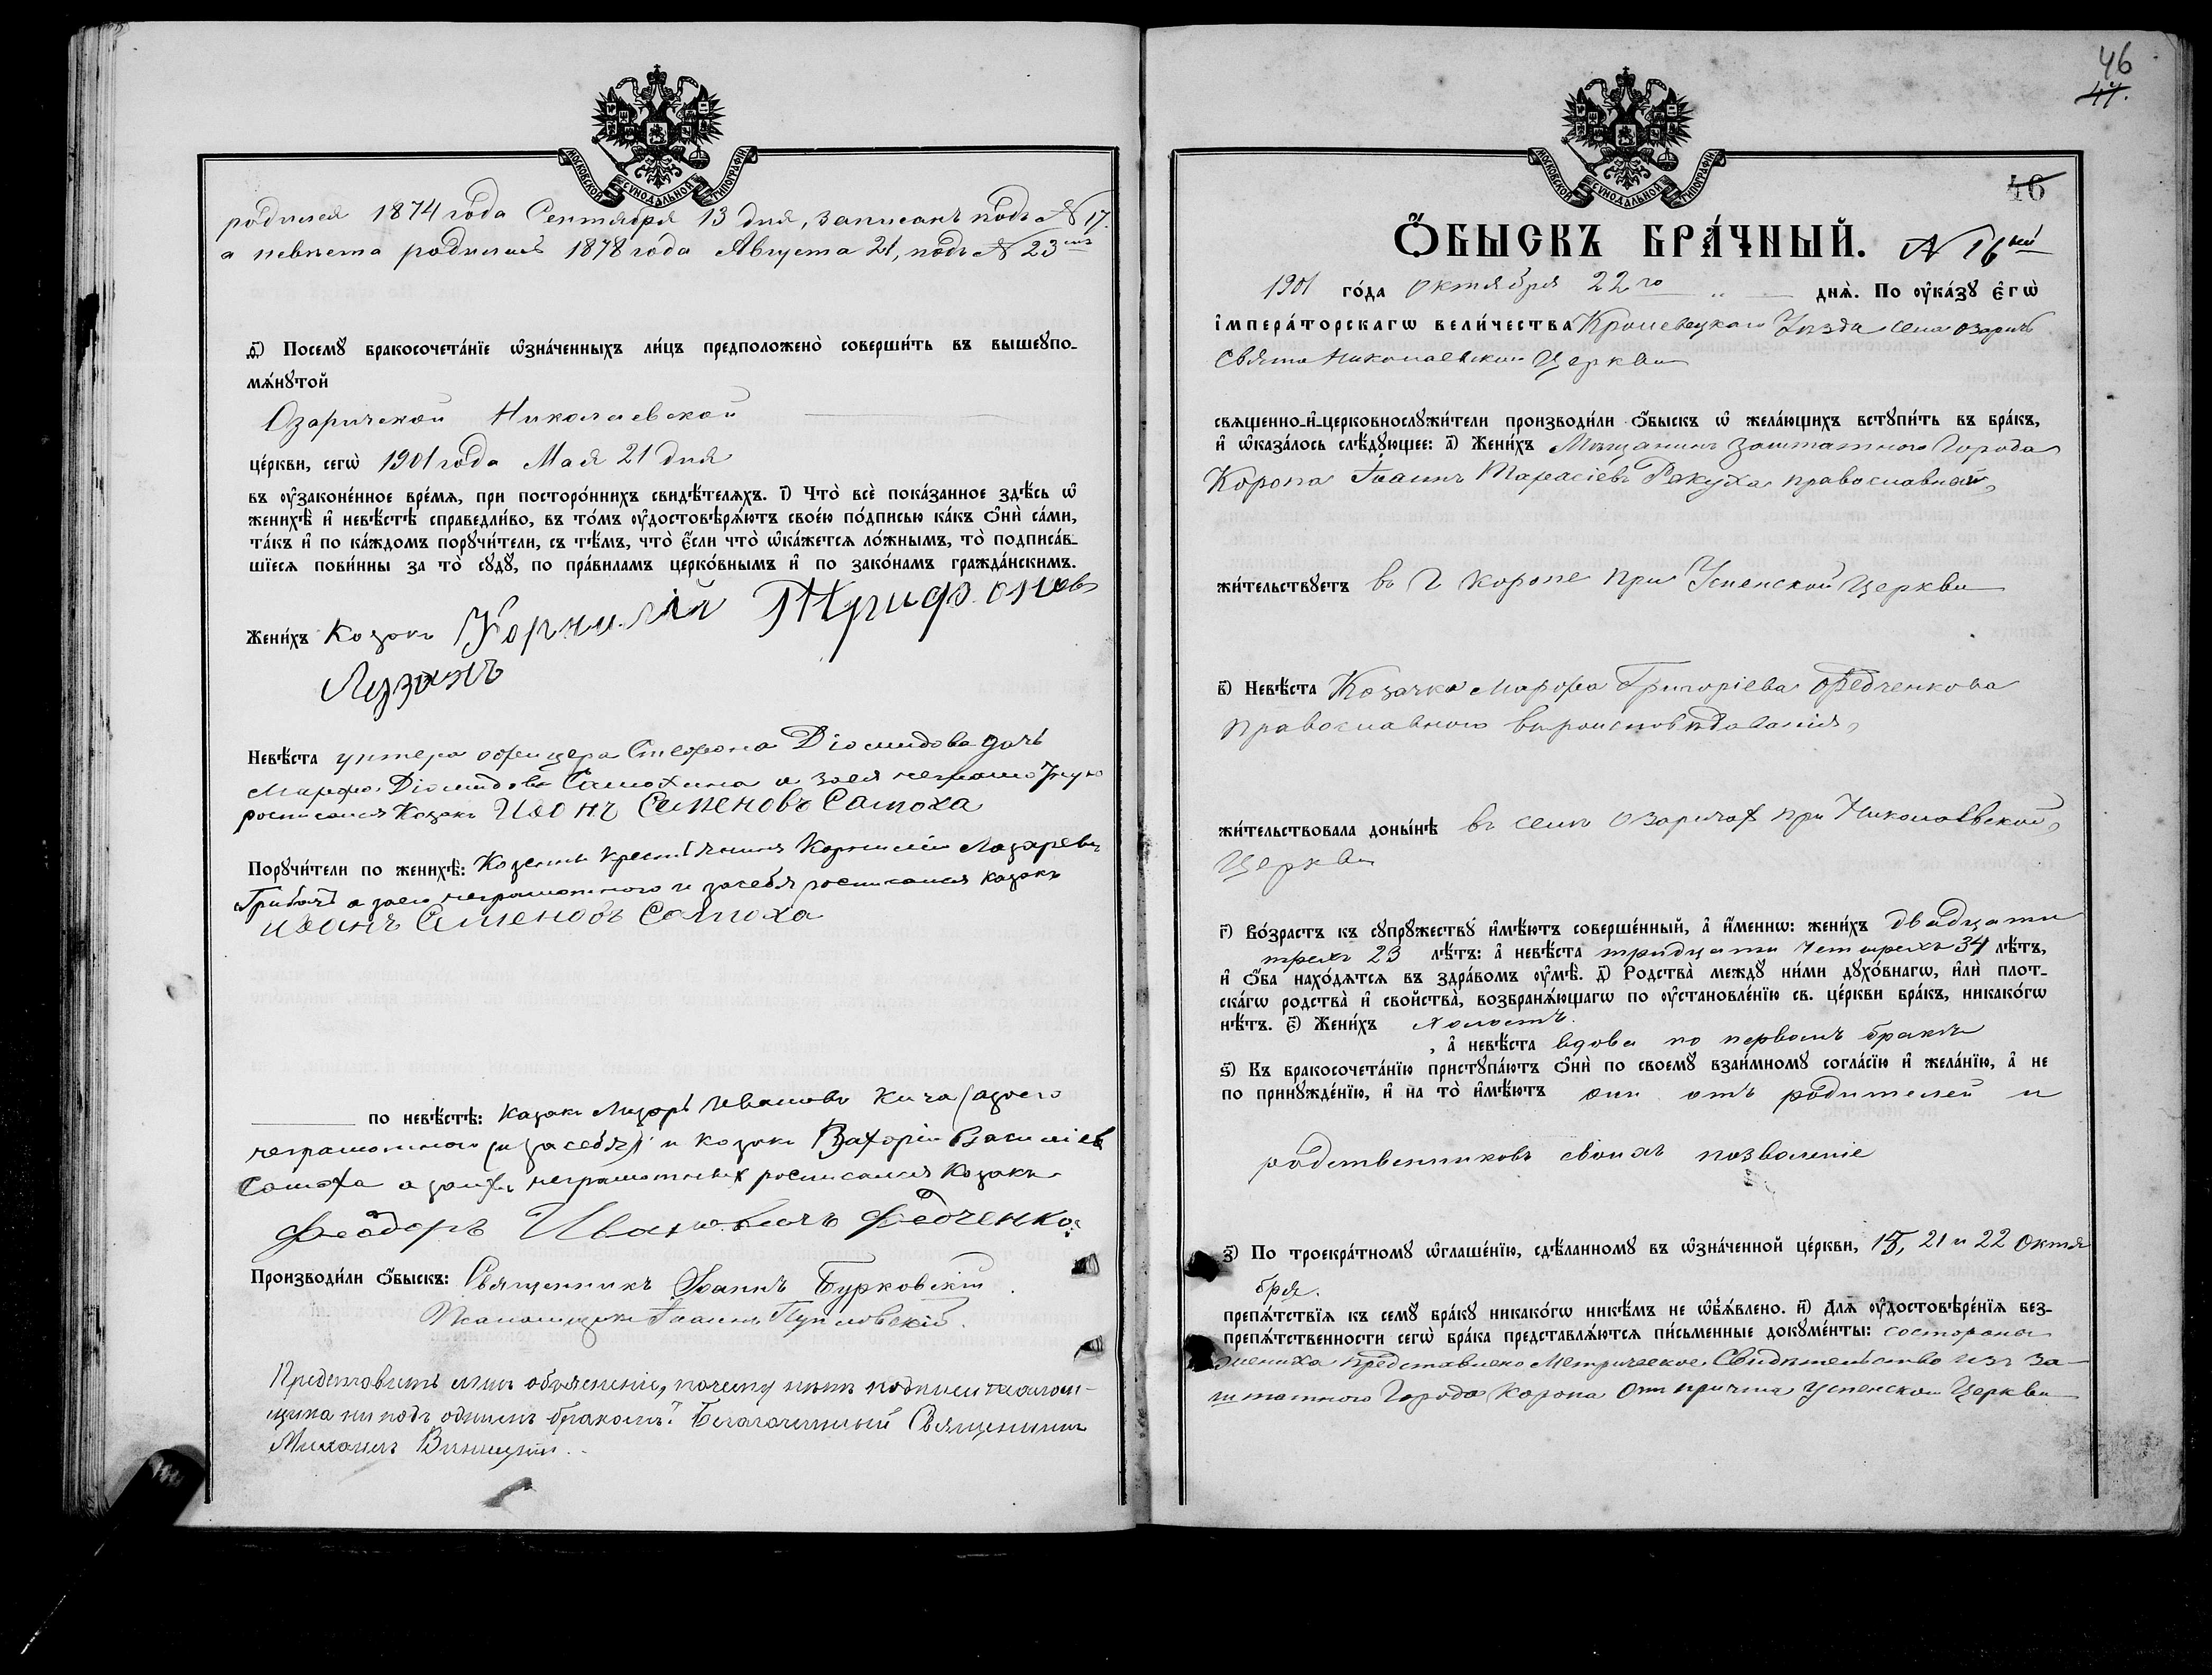 МОСКОВСКОЙ СѴНОДАЛЬНОЙ ТИПОГРАФІИ
родился 1874 года Сентября 13 дня, записанъ подъ № 17.
а невѣста родилась 1878 года Августа 21, подъ № 23мъ
ѳ҃) Посемꙋ бракосочета́нїе ѡ҆зна́ченныхъ ли́цъ предположено̀ соверши́ть въ вышеꙋпо-
мѧ́нꙋтой
Озаричской Николаевской
це́ркви, сегѡ̀ 1901 года Мая 21 дня
въ ᲂу҆законе́нное вре́мѧ, при посторо́ннихъ свидѣ́телѧхъ. і҃) Что̀ всѐ пока́занное здѣ́сь ѡ҆
женихѣ̀ и҆ невѣ́стѣ справедли́во, въ то́мъ ᲂу҆достовѣрѧ́ютъ свое́ю по́дписью ка́къ ѻ҆нѝ са́ми,
та́къ и҆ по ка́ждомъ порꙋчи́тели, съ тѣ́мъ, что̀ є҆́сли что̀ ѡ҆ка́жетсѧ ло́жнымъ, то̀ подписа́в-
шїесѧ пови́нны за то̀ сꙋдꙋ̀, по пра́виламъ церко́внымъ и҆ по зако́намъ гражда́нскимъ.
Жени́хъ Козакъ Корнилій Трифоновъ
Лузанъ
Невѣ́ста унтера офицера Стефана Діомидова дочь
Марфа Діомидова Самохина а за ея неграмотную
росписался Козакъ Иванъ Семеновъ Самоха
Порꙋчи́тели по женихѣ̀: Козенный крестьянинъ Корнилій Лазаревъ
Грибачъ а за его неграмотного и за себя росписался казакъ
Иванъ Семеновъ Самоха
по невѣ́стѣ: казакъ Лазорь Ивановъ Кича (а за его
неграмотного (и за себя) и козакъ Захорій Василіев
Самоха а за ихъ неграмотных росписался Козакъ
Феодоръ Ивановичъ Федченко:
Производи́ли ѻ҆́быскъ: Священникъ Іоаннъ Бурковскій
Псаломщикъ Іоаннъ Пупловскій.
Представить мнѣ объясненіе, почему нѣтъ подписи псалом-
щика ни подъ однимъ бракомъ? Благочинный Священникъ
Михаилъ
46
47.
МОСКОВСКОЙ СѴНОДАЛЬНОЙ ТИПОГРАФІИ
46
Ѻ҆́БЫСКЪ БРА́ЧНЫЙ. № 16ый
1901 го́да Октября 22го днѧ̀. По ᲂу҆ка́зꙋ є҆гѡ̀
і҆мпера́торскагѡ вели́чества Кролевецкаго Уѣзда села Озаричъ
Свято Николаевской Церкви
свѧщенно-и҆-церковнослꙋжи́тели производи́ли ѻ҆́быскъ ѡ҆ жела́ющихъ встꙋпи́ть въ бра́къ,
и҆ ѡ҆каза́лось слѣ́дꙋющее: а҃) Жени́хъ Мѣщанинъ Заштатного Города
Коропа Іоаннъ Тарасіевъ Рокуха православный,
жи́тельствꙋетъ въ Г Коропе при Успенской Церкви
в҃) Невѣ́ста Козачка Марфа Григоріева Федченкова
Православного вѣроисповѣдованія,
жи́тельствовала доны́нѣ въ селѣ Озаричах при Николаевской,
Церкви
г҃) Во́зрастъ къ сꙋпрꙋ́жествꙋ и҆мѣ́ютъ соверше́нный, а҆ и҆́меннѡ: жени́хъ двадцати
трехъ 23 лѣ́тъ: а҆ невѣ́ста тридцати четырехъ 34 лѣ́тъ,
и҆ ѻ҆́ба нахо́дѧтсѧ въ здра́вомъ ᲂу҆мѣ̀. д҃) Родства̀ междꙋ̀ ни́ми дꙋхо́внагѡ, и҆лѝ плот-
ска́гѡ родства̀ и҆ сво́йства̀, возбранѧ́ющагѡ по ᲂу҆становле́нїю св. це́ркви бра́къ, никако́гѡ
нѣ́тъ. є҃) Жени́хъ холостъ.
, а҆ невѣ́ста вдова по первомъ бракѣ
ѕ҃) Къ бракосочета́нїю пристꙋпа́ютъ ѻ҆нѝ по своемꙋ̀ взаи́мномꙋ согла́сїю и҆ жела́нїю, а҆ не
по принꙋжде́нїю, и҆ на то̀ и҆мѣ́ютъ они отъ родителей и
родственниковъ своихъ позволеніе
з҃) По троекра́тномꙋ ѡ҆глаше́нїю, сдѣ́ланномꙋ въ ѡ҆зна́ченной це́ркви, 15, 21 и 22 Октя
бря.
препѧ́тствїѧ къ семꙋ̀ бра́кꙋ никако́гѡ никѣ́мъ не ѡ҆б̾ѧ́влено. и҃) Длѧ̀ ᲂу҆достовѣре́нїѧ без-
препѧ́тственности сегѡ̀ бра́ка представлѧ́ютсѧ пи́сьменные докꙋме́нты: состороны
жениха представлено Метрическое Свидѣтельство изъ За-
штатного Города Коропа Отъ причта Успенской Церкви